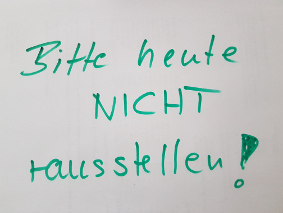 Bitte heute
NICHT
rausstellen!